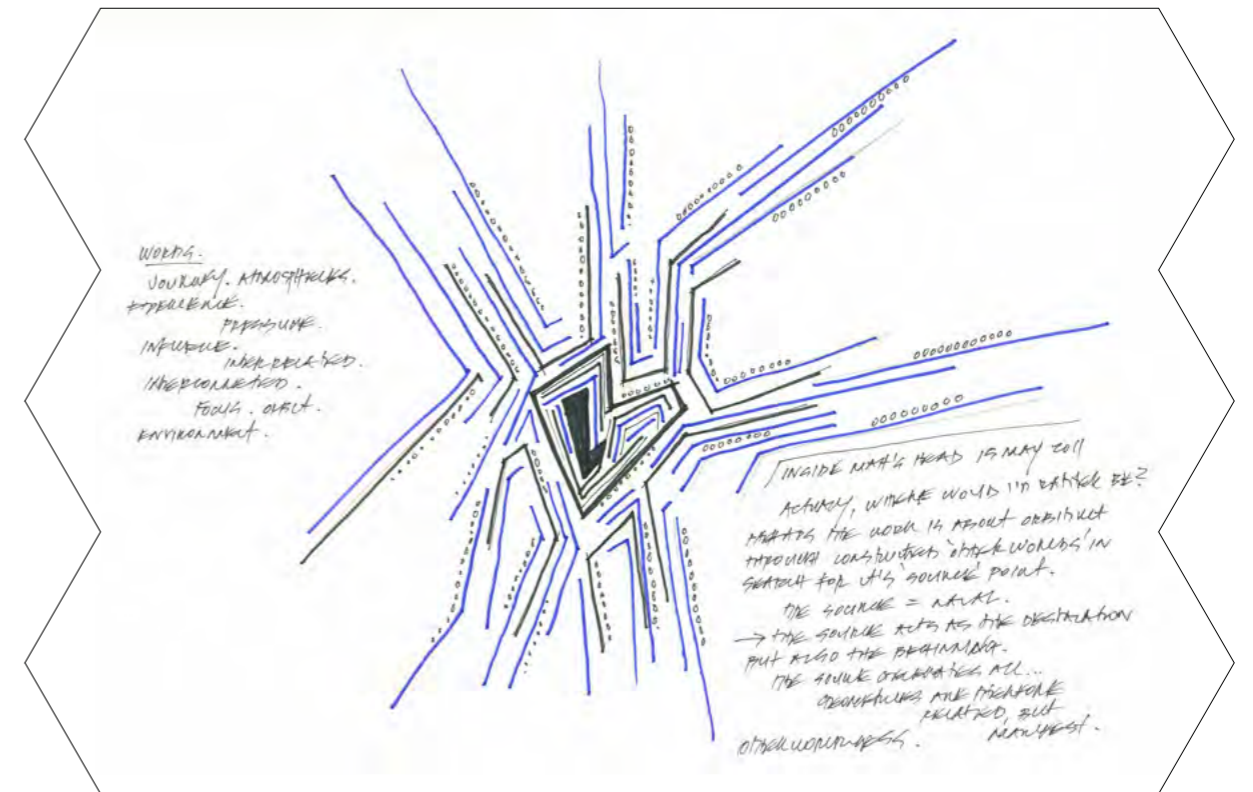 WORDS.
JOURNEY. ATMOSPHERES.
EXPERIENCE.
PRESSURE.
INFLUENCE.
INTER RELATED.
INTERCONNECTED.
FOCUS. ORBIT.
ENVIRONMENT.
INSIDE MATT'S HEAD 15 MAY 2011
ACTUALLY, WHERE WOULD I'D RATHER BE?
PERHAPS THE WORK IS ABOUT ORBITING
THROUGH CONSTRUCTED 'OTHER WORLDS' IN
SEARCH FOR IT'S 'SOURCE' POINT.
THE SOURCE = NAVAL.
→ THE SOURCE ACTS AS THE DESTINATION
BUT ALSO THE BEGINNING.
THE SOURCE GENERATES ALL...
GEOMETRIES ARE THEREFORE
RELATED, BUT
MANIFEST.
OTHERWORLDLINESS.